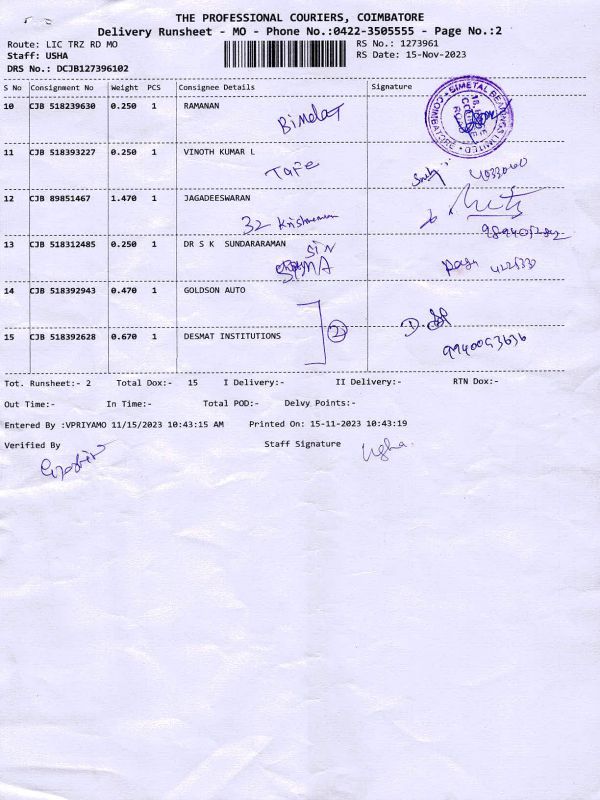 THE PROFESSIONAL COURIERS, COIMBATORE
Delivery Runsheet - MO - Phone No.:0422-3505555 - Page No.:2
Route: LIC TRZ RD MO RS No.: 1273961
Staff: USHA RS Date: 15-Nov-2023
DRS No.: DCJB127396102
S No Consignment No Weight PCS Consignee Details Signature
10 CJB 518239630 0.250 1 RAMANAN
Bimetal
11 CJB 518393227 0.250 1 VINOTH KUMAR L
Tafe
12 CJB 89851467 1.470 1 JAGADEESWARAN
32
13 CJB 518312485 0.250 1 DR S K SUNDARARAMAN
14 CJB 518392943 0.470 1 GOLDSON AUTO
2
15 CJB 518392628 0.670 1 DESMAT INSTITUTIONS
9940093636
Tot. Runsheet:- 2 Total Dox:- 15 I Delivery:- II Delivery:- RTN Dox:-
Out Time:- In Time:- Total POD:- Delvy Points:-
Entered By :VPRIYAMO 11/15/2023 10:43:15 AM Printed On: 15-11-2023 10:43:19
Verified By Staff Signature
Usha.